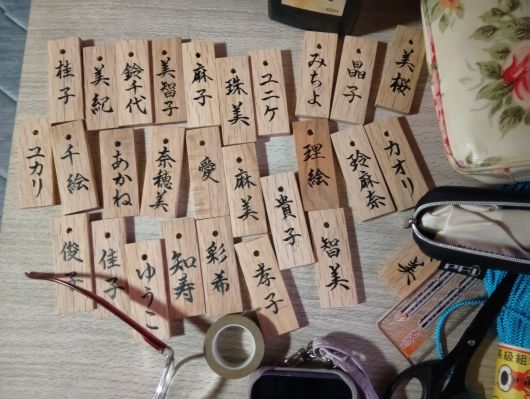 桂子
美紀
鈴千代
美智子
麻子
珠美
ユニケ
みちよ
晶子
美桜
ユカリ
千絵
あかね
奈穂美
愛
麻美
貴子
理絵
玲麻奈
カオリ
俊子
佳子
ゆうこ
知寿
彩希
孝子
智美
高級組